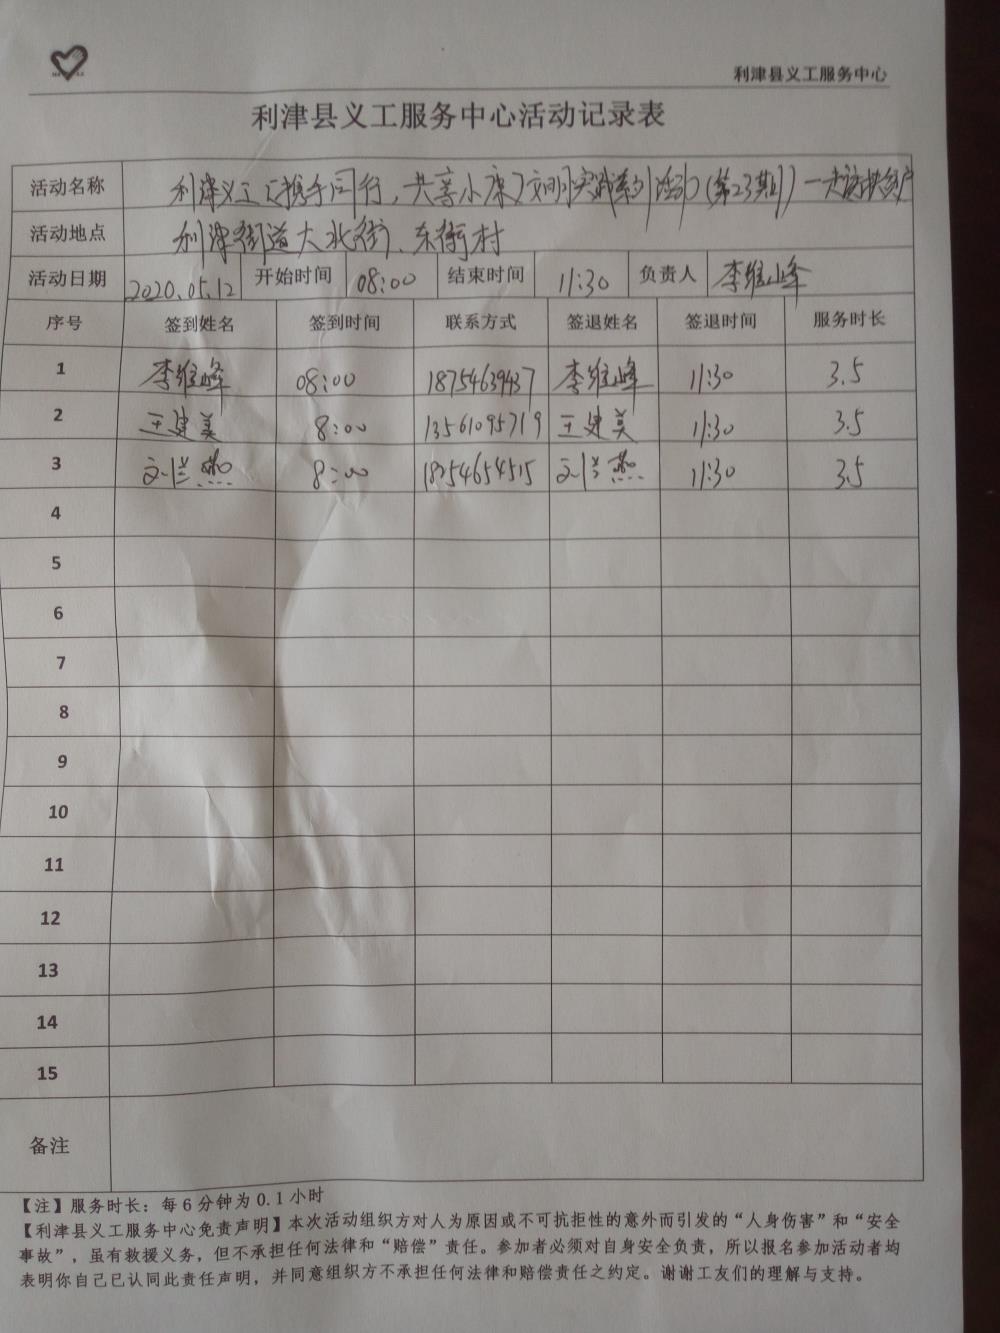 利津县义工服务中心
利津县义工服务中心活动记录表
活动名称 利津义工“携手同行,共享小康”文明实践系列活动(第23期)—走访扶贫户
活动地点 利津街道大北街、东街村
活动日期 2020.05.12 开始时间 08:00 结束时间 11:30 负责人 李维峰
序号 签到姓名 签到时间 联系方式 签退姓名 签退时间 服务时长
1 李维峰 08:00 18754639437 李维峰 11:30 3.5
2 王建美 8:00 13561095719 王建美 11:30 3.5
3 刘兰燕 8:00 18754654515 刘兰燕 11:30 3.5
4
5
6
7
8
9
10
11
12
13
14
15
备注
【注】服务时长:每6分钟为0.1小时
【利津县义工服务中心免责声明】本次活动组织方对人为原因或不可抗拒性的意外而引发的“人身伤害”和“安全
事故”,虽有救援义务,但不承担任何法律和“赔偿”责任。参加者必须对自身安全负责,所以报名参加活动者均
表明你自己已认同此责任声明,并同意组织方不承担任何法律和赔偿责任之约定。谢谢工友们的理解与支持。